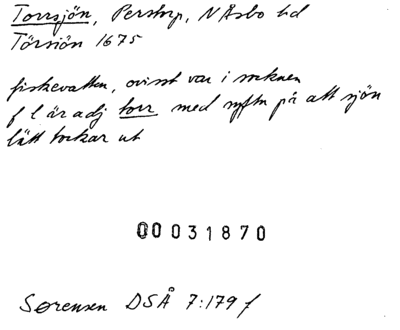 Torrsjön, Perstorp, N Åsbo hd
Törsiön 1675
fiskevatten, ovisst var i socknen
f l är adj torr med syftn på att sjön
lätt torkar ut
00031870
Sørensen DSÅ 7:179 f